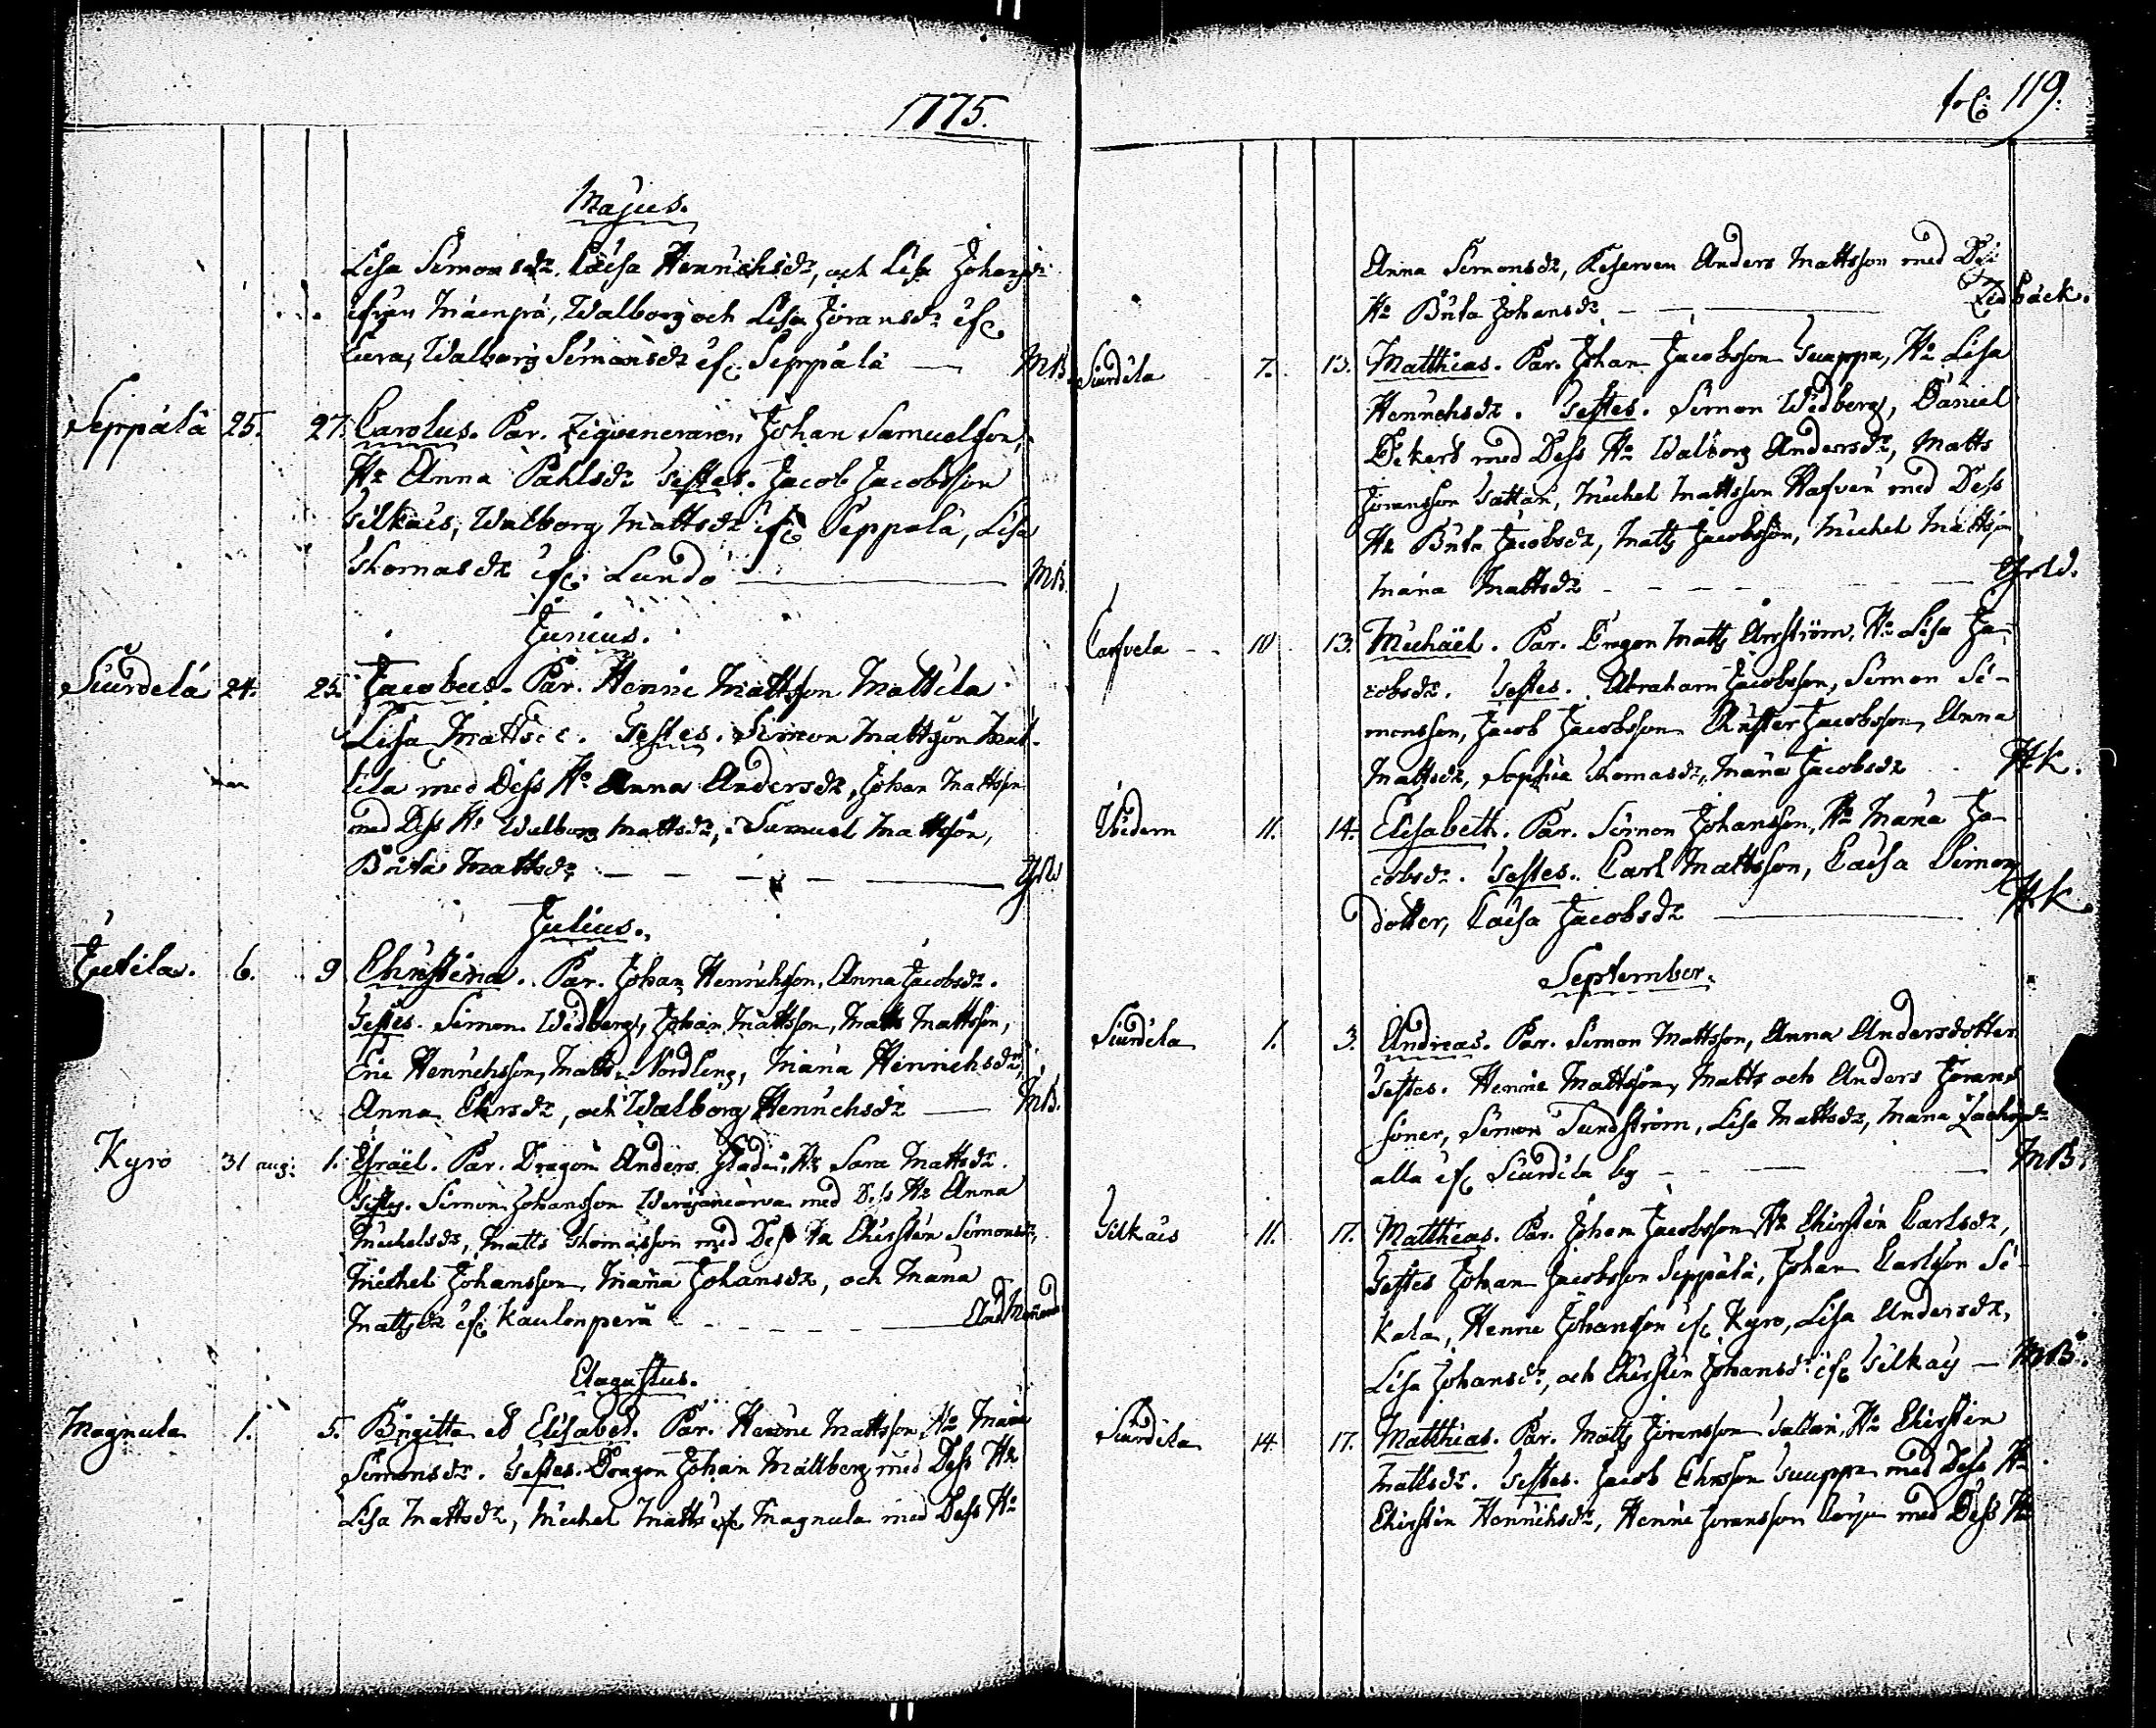 1775.
Majus.
Lisa Simonsdr. Caisa Henrichsdr, och Lisa Johansdr
ifrån Mäenpä, Walborg och Lisa Jöransdr if.
Eura, Walborg Simonsdr if. Seppälä — MB.
Seppälä 25. 27. Carolus. Par. Zigveneraren Johan Samuelson,
Hu Anna Påhlsdr Testes. Jacob Jacobsson
Yilkäis, Walborg Mattsdr if. Seppälä, Lisa
Thomasdr if. Lundo — MB.
Junius.
Siurdela 24. 25. Jacobus. Par. Henric Mattsson Mattila
Lisa Testes. Simon Mattsson Mat-
tila med Dess Hu Anna Andersdr, Johan Mattsson
med Dess Hu Walborg Mattsdr, Samuel Mattsson,
Brita Mattsdr — — — —
Julius.
Jutila. 6. 9. Christina. Par. Johan Henrichsson, Anna Jacobsdr.
Testes. Simon Widberg, Johan Mattsson, Matts Mattsson,
Eric Henrichsson, Matts Nordling, Maria Henrichsdr,
Anna Ehrsdr, och Walborg Henrichsdr — MB.
Kyro 31 aug: 1. Israël. Par. Dragon Anders Glader, Hu Sara Mattsdr.
Testes. Simon Johansson med Dess Hu Anna
Michelsdr, Matts Thomasson med Dess Hu Chirstin Simonsdr,
Michel Johansson, Maria Johansdr, och Maria
Mattsdr if. Kaulonperä — — — —
Augustus.
Magnula 1. 5. Birgitta et Elisabet. Par. Henric Mattsson, Hu Maria
Simonsdr. Testes. Dragon Johan Mallberg med Dess Hu
Lisa Mattsdr, Michel Matts if. Magnula med Dess Hu
fol: 119.
Anna Simonsdr, Reserven Anders Mattsson med Dess
Hu Brita Johansdr — — — Lidbäck.
Siurdila 7. 13. Matthias. Par. Johan Jacobsson Suappa, Hu Lisa
Henrichsdr. Testes. Simon Widberg, Daniel
Ekert med Dess Hu Walborg Andersdr, Matts
Jöransson Sattari, Michel Mattsson Hafven med Dess
Hu Brita Jacobsdr, Matts Jacobsson, Michel Mattsson
Maria Mattsdr — — — —
Carfvela 10 13. Michaël. Par. Dragon Matts Ahrström, Hu Lisa Ja-
cobsdr. Testes. Abraham Jacobsson, Simon Si-
monsson, Jacob Jacobsson Christer Jacobsson, Anna
Mattsdr, Sophia Thomasdr, Maria Jacobsdr HK.
Ibidem 11. 14. Elisabeth. Par. Simon Johansson, Hu Maria Ja-
cobsdr. Testes. Carl Mattsson, Caisa Simons
dotter, Caisa Jacobsdr — HK.
September.
Siurdila 1. 3. Andreas. Par. Simon Mattsson, Anna Andersdotter
Testes. Henric Mattsson, Matts och Anders Jörans
söner, Simon Sundström, Lisa Mattsdr, Maria
alla if. Siurdila by — — — MB.
Yilkäis 11. 17. Matthias. Par. Johan Jacobsson Hu Chirstin Carlsdr,
Testes Johan Jacobsson Seppälä, Johan Carlsson Si-
kala, Henric Johansson if. Kyro, Lisa Andersdr,
Lisa Johansdr, och Chirstin Johansdr if. Yilkäis — MB.
Siurdila 14. 17. Matthias. Par. Matts Jöransson Sattari, Hu Chirstin
Mattsdr. Testes. Jacob Ehrsson Suuppa med Dess Hu
Chirstin Henrichsdr, Henric Jöransson med Dess Hu